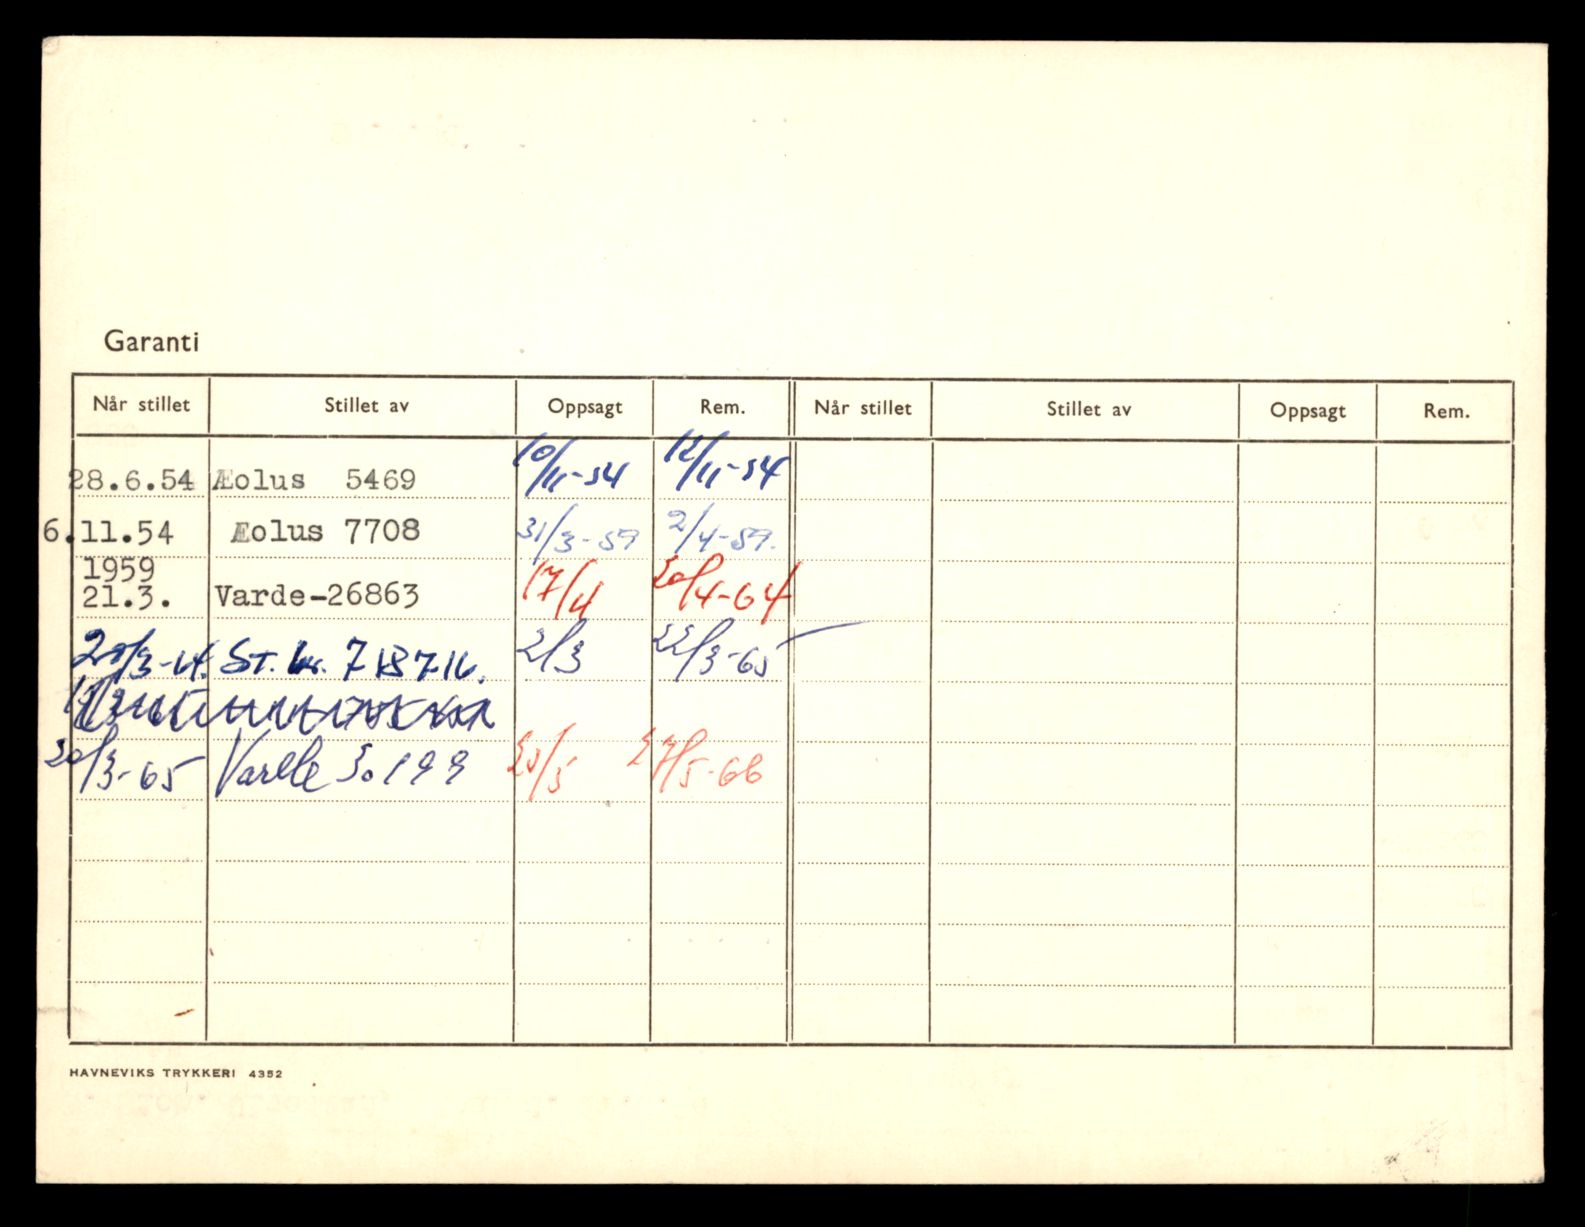 Garanti
Når stillet Stillet av Oppsagt Rem. Når stillet Stillet av Oppsagt Rem.
28.6.54 Æolus 5469 10/11-54 12/11-54
6.11.54 Æolus 7708 31/3-59 2/4-59.
1959
21.3. Varde-26863 17/4 20/4-64
/3-64. St. br. 718716. 2/3 22/3-65
30/3-65 Varde 30199 25/5 27/5-66
HAVNEVIKS TRYKKERI 4352